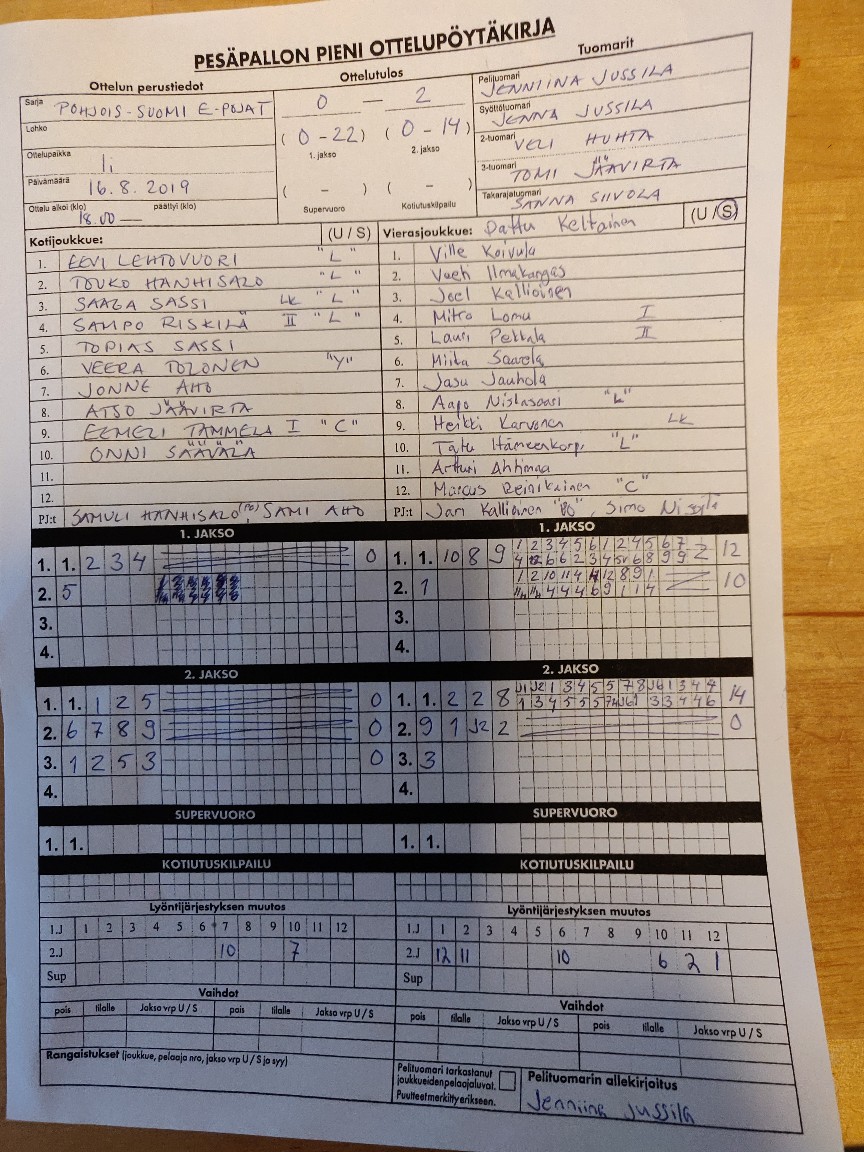 PESÄPALLON PIENI OTTELUPÖYTÄKIRJA
Ottelun perustiedot
Ottelutulos
Tuomarit
Sarja POHJOIS-SUOMI E-POJAT
Lohko
Ottelupaikka Ii
Päivämäärä 16.8.2019
Ottelu alkoi (klo) 18.00 — päättyi (klo)
0 — 2
(0-22) (0-14)
1. jakso 2. jakso
( - ) ( - )
Supervuoro Kotiutuskilpailu
Pelituomari JENNIINA JUSSILA
Syöttötuomari JENNA JUSSILA
2-tuomari VELI HUHTA
3-tuomari TOMI JÄÄVIRTA
Takarajatuomari SANNA SIIVOLA
Kotijoukkue: (U / S)
1. EEVI LEHTOVUORI "L"
2. TOUKO HANHISALO "L"
3. SAAGA SASSI LK "L"
4. SAMPO RISKILÄ II "L"
5. TOPIAS SASSI
6. VEERA TOLONEN "Y"
7. JONNE AHO
8. ATSO JÄÄVIRTA
9. EEMELI TAMMELA I "C"
10. ONNI SÄÄVÄLÄ
11.
12.
PJ:t SAMULI HANHISALO (PO), SAMI AHO
Vierasjoukkue: Pattu Keltainen (U / S)
1. Ville Koivula
2. Veeti Ilmakangas
3. Joel Kallioinen
4. Mitro Lomu I
5. Lauri Pekkala II
6. Miika Saarela
7. Jasu Jauhola
8. Aapo Niskasaari "L"
9. Heikki Karvonen LK
10. Tatu Hämeenkorpi "L"
11. Artturi Ahtimaa
12. Marcus Reinikainen "C"
PJ:t Jari Kallioinen "PO", Simo
1. JAKSO
1. 1. 2 3 4 0
2. 5
3.
4.
1. JAKSO
1. 1. 10 8 9 12
2. 1 10
3.
4.
2. JAKSO
1. 1. 1 2 5 0
2. 6 7 8 9 0
3. 1 2 5 3 0
4.
2. JAKSO
1. 1. 2 2 8 14
2. 9 1 J2 2 0
3. 3
4.
SUPERVUORO
1. 1.
SUPERVUORO
1. 1.
KOTIUTUSKILPAILU
KOTIUTUSKILPAILU
Lyöntijärjestyksen muutos
1.J 1 2 3 4 5 6 7 8 9 10 11 12
2.J 10 7
Sup
Lyöntijärjestyksen muutos
1.J 1 2 3 4 5 6 7 8 9 10 11 12
2.J 12 11 10 6 2 1
Sup
Vaihdot
pois tilalle Jakso vrp U / S pois tilalle Jakso vrp U / S
Vaihdot
pois tilalle Jakso vrp U / S pois tilalle Jakso vrp U / S
Rangaistukset (joukkue, pelaaja nro, jakso vrp U / S ja syy)
Pelituomari tarkastanut
joukkueiden pelaajaluvat.
Puutteet merkitty erikseen.
Pelituomarin allekirjoitus
Jenniina Jussila